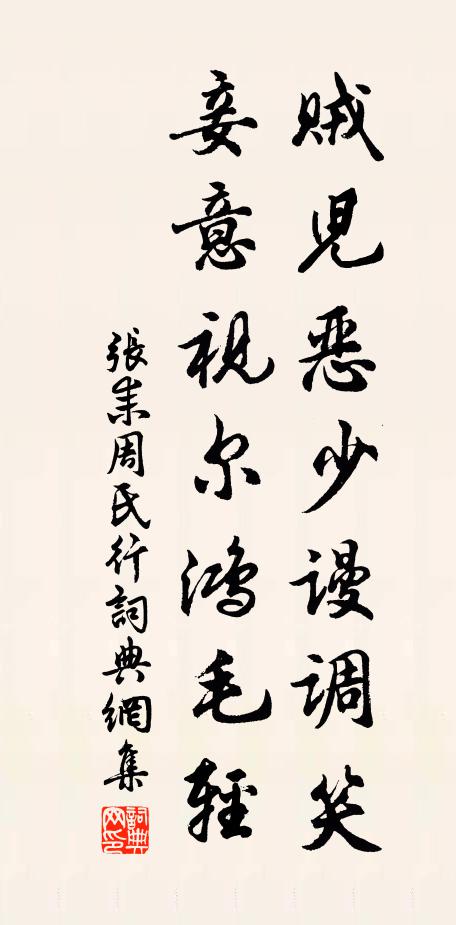 贼児恶少谩调笑
妾意视尔鸿毛轻
張耒周民行詞典網集
詞典网印